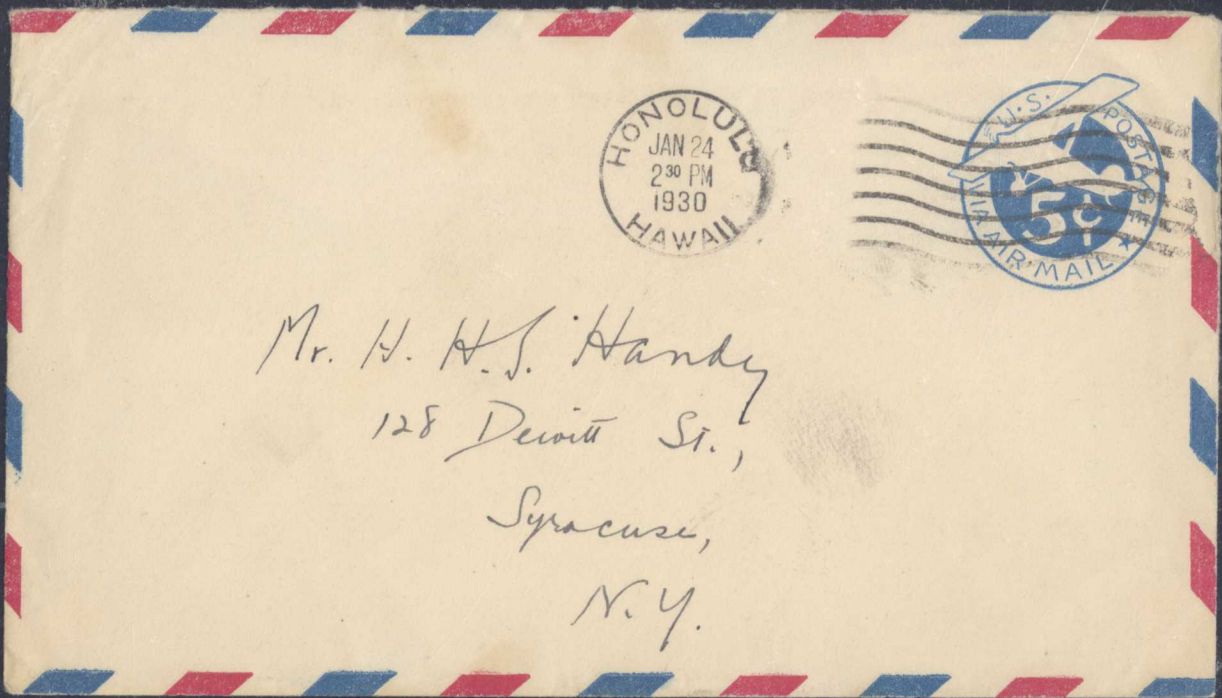 HONOLULU
JAN 24
2 30 PM
1930
HAWAII
U·S· POSTAGE
5¢
VIA AIR MAIL
Mr. H. H. S. Handy
128 Dewitt St.,
Syracuse,
N.Y.